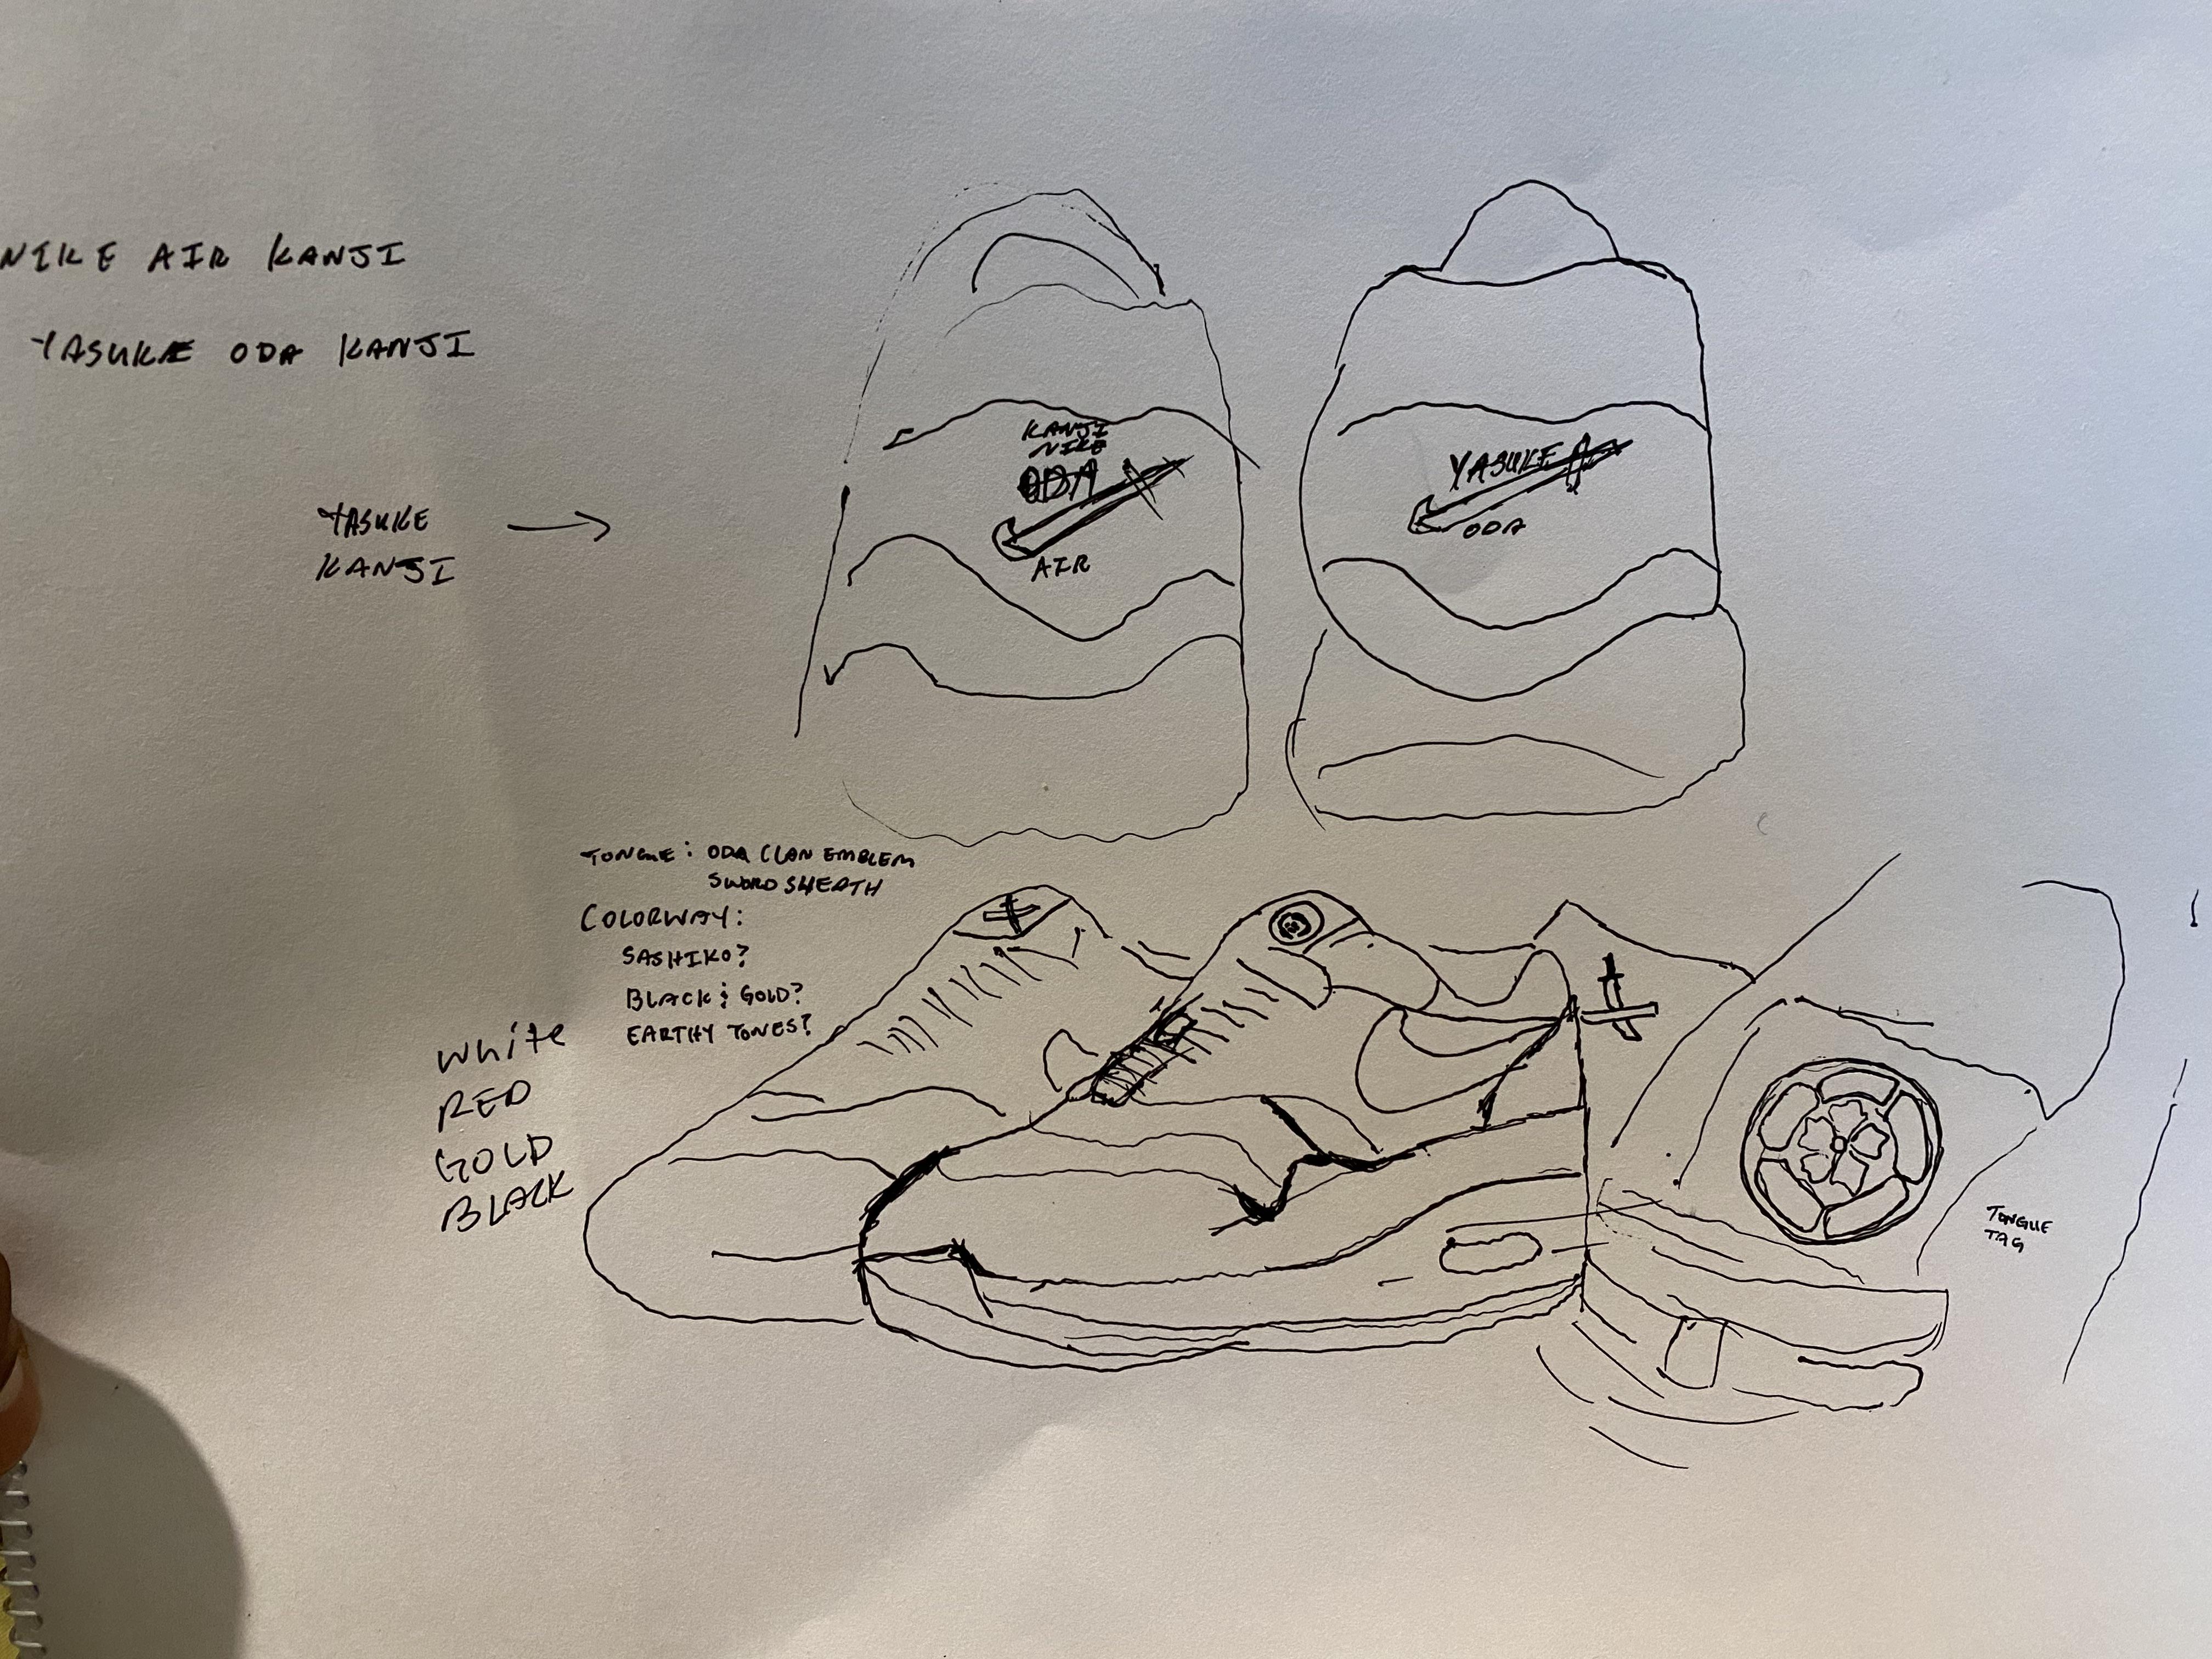 NIKE AIR KANJI
YASUKE ODA KANJI
YASUKE
KANJI
KANJI
NIKE
ODA
AIR
YASUKE
ODA
TONGUE: ODA CLAN EMBLEM
SWORD SHEATH
COLORWAY:
SASHIKO?
BLACK & GOLD?
EARTHY TONES?
White
RED
GOLD
BLACK
TONGUE
TAG